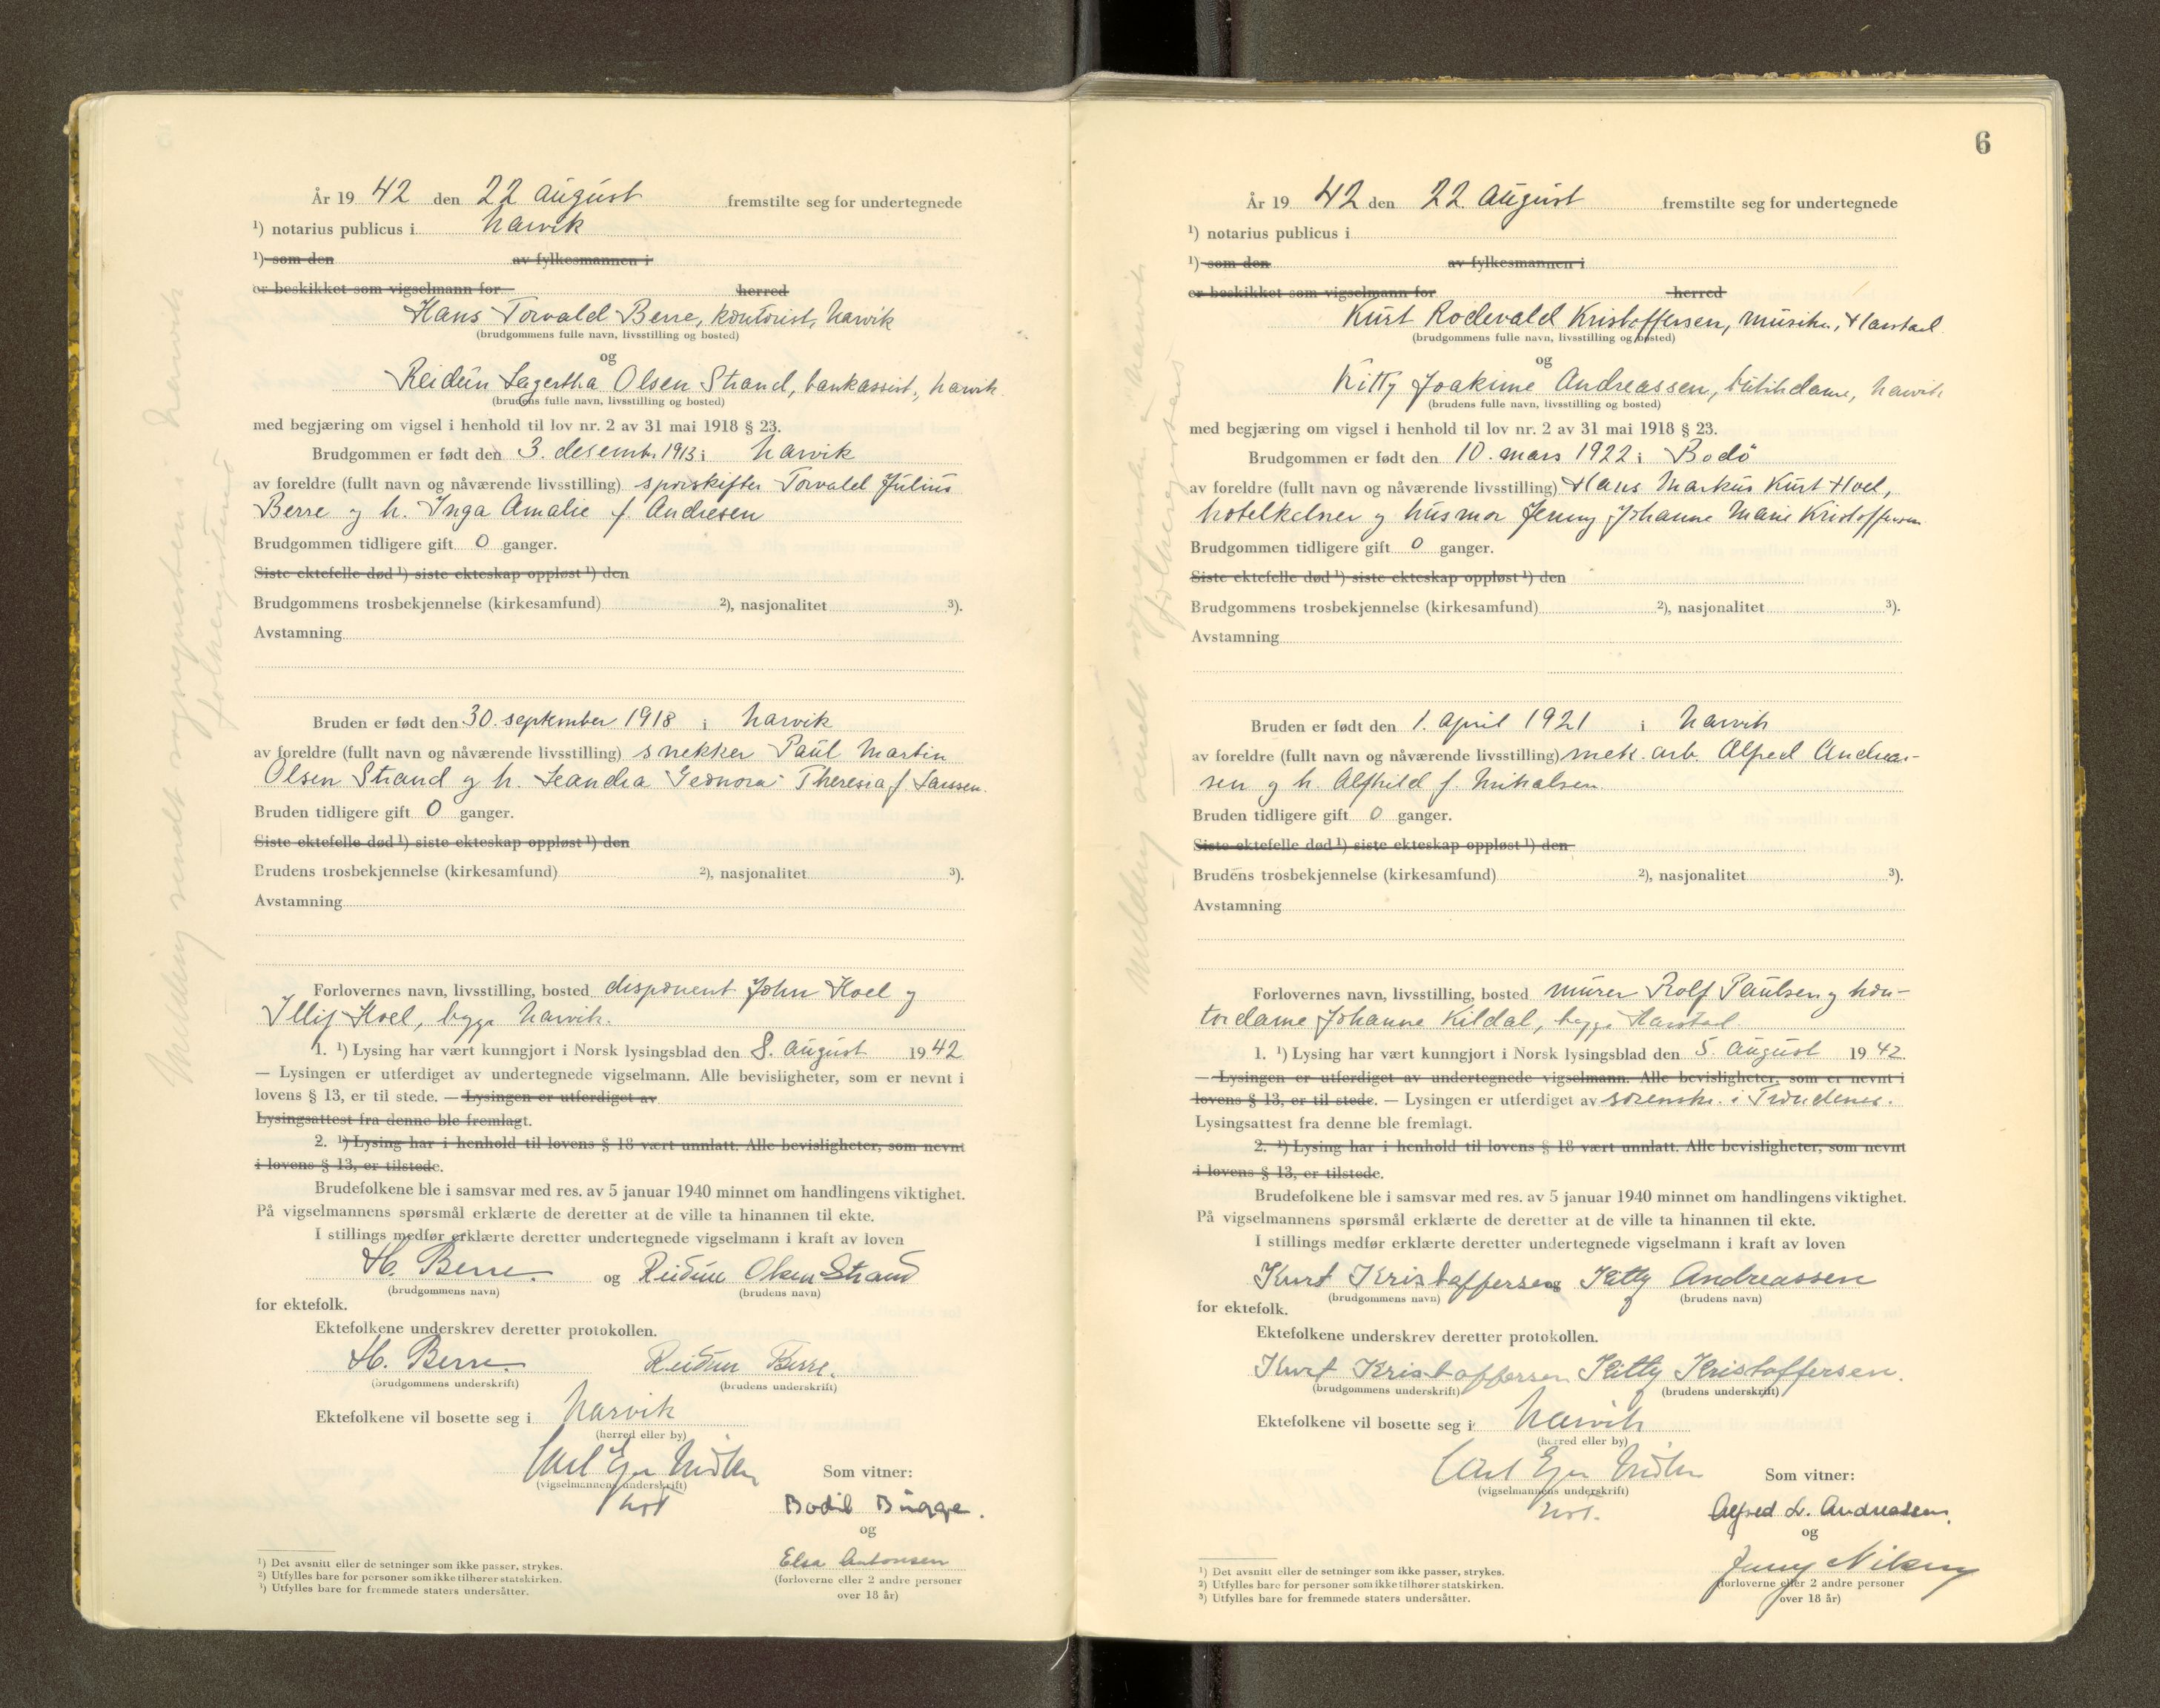 År 19 42 den 22 august fremstilte seg for undertegnede
¹) notarius publicus i Narvik
¹) som den av fylkesmannen i
er beskikket som vigselmann for herred
Hans Torvald Berre, kontorist, Narvik
(brudgommens fulle navn, livsstilling og bosted)
og
Reidun Lagertha Olsen Strand, bankassist., Narvik
(brudens fulle navn, livsstilling og bosted)
med begjæring om vigsel i henhold til lov nr. 2 av 31 mai 1918 § 23.
Brudgommen er født den 3. desemb. 1913 i Narvik
av foreldre (fullt navn og nåværende livsstilling) sporskifter Torvald Julius
Berre og h. Inga Amalie f. Andresen
Brudgommen tidligere gift 0 ganger.
Siste ektefelle død ¹) siste ekteskap oppløst ¹) den
Brudgommens trosbekjennelse (kirkesamfund) ²), nasjonalitet ³).
Avstamning
Bruden er født den 30. september 1918 i Narvik
av foreldre (fullt navn og nåværende livsstilling) snekker Paul Martin
Olsen Strand og h. Leandra Theresia f. Larssen.
Bruden tidligere gift 0 ganger.
Siste ektefelle død ¹) siste ekteskap oppløst ¹) den
Brudens trosbekjennelse (kirkesamfund) ²), nasjonalitet ³).
Avstamning
Forlovernes navn, livsstilling, bosted disponent John Hoel og
Hoel, begge Narvik.
1. ¹) Lysing har vært kunngjort i Norsk lysingsblad den 8. august 1942
— Lysingen er utferdiget av undertegnede vigselmann. Alle bevisligheter, som er nevnt i
lovens § 13, er til stede. — Lysingen er utferdiget av
Lysingsattest fra denne ble fremlagt.
2. ¹) Lysing har i henhold til lovens § 18 vært unnlatt. Alle bevisligheter, som nevnt
i lovens § 13, er tilstede.
Brudefolkene ble i samsvar med res. av 5 januar 1940 minnet om handlingens viktighet.
På vigselmannens spørsmål erklærte de deretter at de ville ta hinannen til ekte.
I stillings medfør erklærte deretter undertegnede vigselmann i kraft av loven
H. Berre. og Reidun Olsen Strand
(brudgommens navn) (brudens navn)
for ektefolk.
Ektefolkene underskrev deretter protokollen.
H. Berre. Reidun Berre.
(brudgommens underskrift) (brudens underskrift)
Ektefolkene vil bosette seg i Narvik
(herred eller by)
Carl
(vigselmannens underskrift)
not
Som vitner:
Bodil Bugge.
og
Elsa Antonsen
(forloverne eller 2 andre personer
over 18 år)
¹) Det avsnitt eller de setninger som ikke passer, strykes.
²) Utfylles bare for personer som ikke tilhører statskirken.
³) Utfylles bare for fremmede staters undersåtter.
Melding sendt sognepresten i Narvik
folkeregisteret
6
År 19 42 den 22. august fremstilte seg for undertegnede
¹) notarius publicus i
¹) som den av fylkesmannen i
er beskikket som vigselmann for herred
Kurt Rodevald Kristoffersen, musiker, Harstad
(brudgommens fulle navn, livsstilling og bosted)
og
Kitty Joakime Andreassen, butikdame, Narvik
(brudens fulle navn, livsstilling og bosted)
med begjæring om vigsel i henhold til lov nr. 2 av 31 mai 1918 § 23.
Brudgommen er født den 10. mars 1922 i Bodö
av foreldre (fullt navn og nåværende livsstilling) Hans Markus Kurt Hoel,
hotelkelner og husmor Jenny Johanne Marie Kristoffersen
Brudgommen tidligere gift 0 ganger.
Siste ektefelle død ¹) siste ekteskap oppløst ¹) den
Brudgommens trosbekjennelse (kirkesamfund) ²), nasjonalitet ³).
Avstamning
Bruden er født den 1. april 1921 i Narvik
av foreldre (fullt navn og nåværende livsstilling) mek. arb. Alfred Andreas-
sen og h. Alfhild f. Mikalsen.
Bruden tidligere gift 0 ganger.
Siste ektefelle død ¹) siste ekteskap oppløst ¹) den
Brudens trosbekjennelse (kirkesamfund) ²), nasjonalitet ³).
Avstamning
Forlovernes navn, livsstilling, bosted murer Rolf Paulsen og kon-
tordame Johanne Kildal, begge Harstad.
1. ¹) Lysing har vært kunngjort i Norsk lysingsblad den 5. august 1942.
— Lysingen er utferdiget av undertegnede vigselmann. Alle bevisligheter, som er nevnt i
lovens § 13, er til stede. — Lysingen er utferdiget av sorenskr. i Trondenes.
Lysingsattest fra denne ble fremlagt.
2. ¹) Lysing har i henhold til lovens § 18 vært unnlatt. Alle bevisligheter, som nevnt
i lovens § 13, er tilstede.
Brudefolkene ble i samsvar med res. av 5 januar 1940 minnet om handlingens viktighet.
På vigselmannens spørsmål erklærte de deretter at de ville ta hinannen til ekte.
I stillings medfør erklærte deretter undertegnede vigselmann i kraft av loven
Kurt Kristoffersen og Kitty Andreassen
(brudgommens navn) (brudens navn)
for ektefolk.
Ektefolkene underskrev deretter protokollen.
Kurt Kristoffersen Kitty Kristoffersen.
(brudgommens underskrift) (brudens underskrift)
Ektefolkene vil bosette seg i Narvik
(herred eller by)
Carl
(vigselmannens underskrift)
not.
Som vitner:
Alfred L. Andreassen.
og
Jenny
(forloverne eller 2 andre personer
over 18 år)
¹) Det avsnitt eller de setninger som ikke passer, strykes.
²) Utfylles bare for personer som ikke tilhører statskirken.
³) Utfylles bare for fremmede staters undersåtter.
Melding sendt sognepresten i Narvik
folkeregisteret